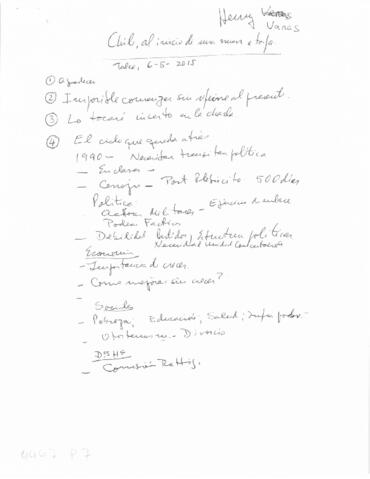 Henry Varas
Varas
Chile, al inicio de una nueva etapa
Talca, 6-5-2015
① Agradecer
② Imposible comenzar sin referirse al presente.
③ Lo tocaré inserto en la charla
④ El ciclo que queda atrás
1990 — Necesitan transitar política
— Enclaves —
— Consejo — Post Plebiscito 500 días
Política
Actores militares — Ejercicio de enlace
Poderes Fácticos
— Debilidad Partidos, Estructura políticas
Necesidad Unidad Concertación
Economía
- Importancia de crecer.
- Como mejorar sin crecer?
Sociales
- Pobreza, Educación, Salud, Infra
- Divorcio
DSHS
— Comisión Rettig.
6467 P.7